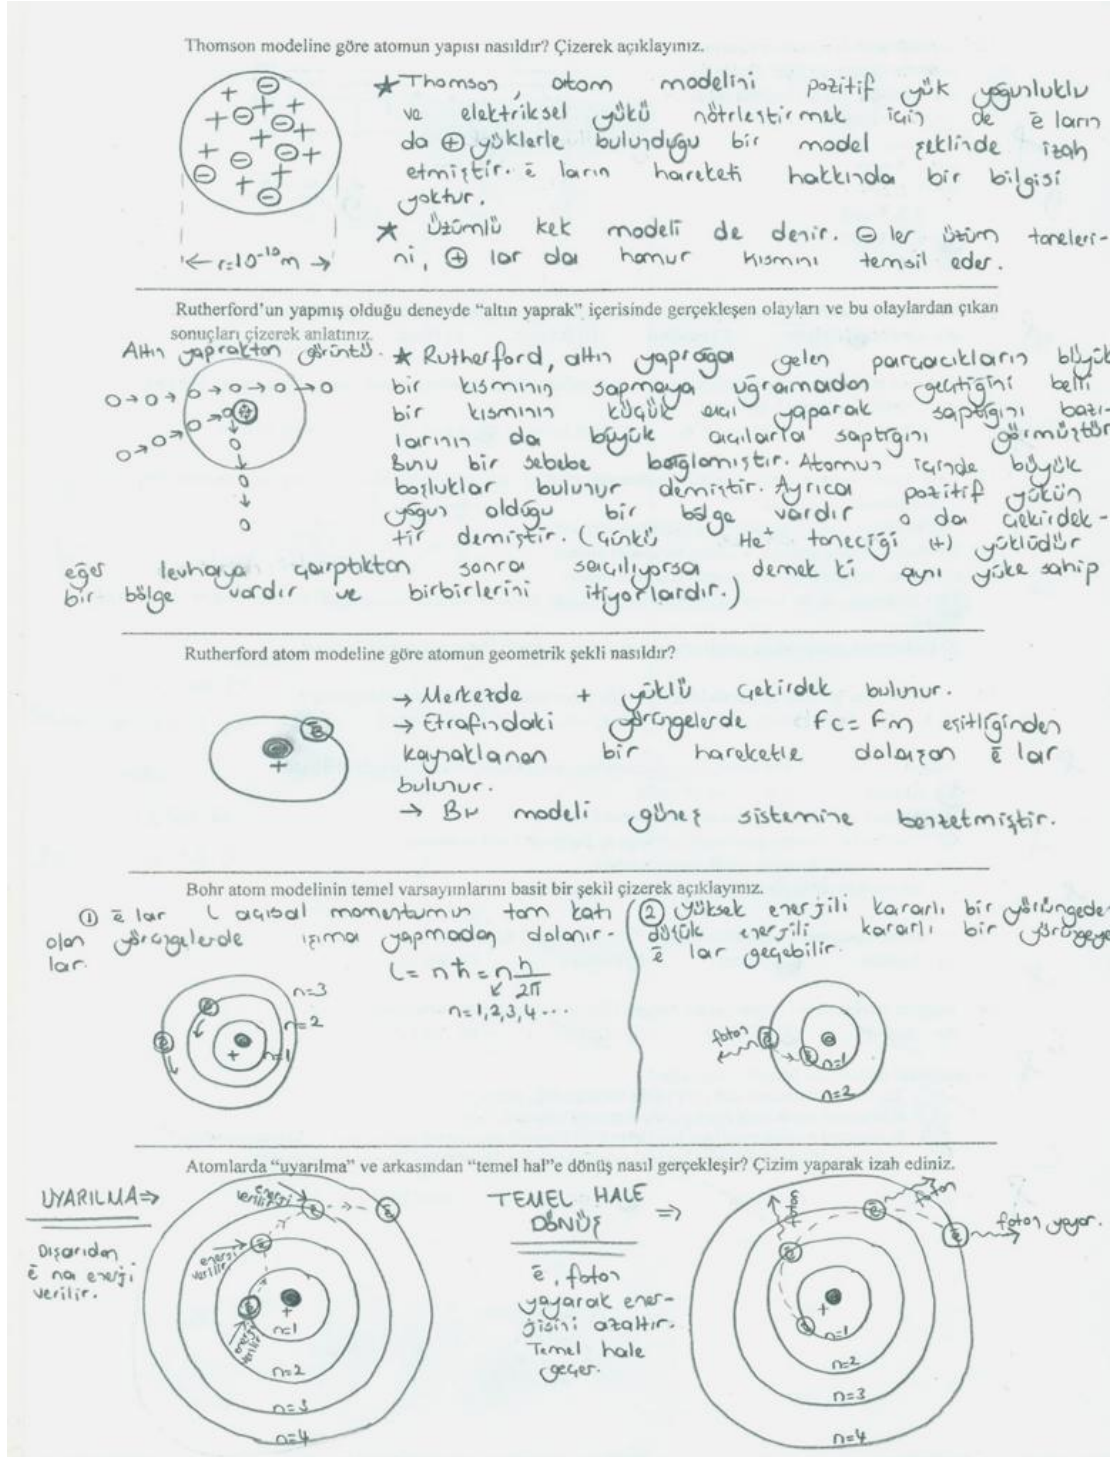 Thomson modeline göre atomun yapısı nasıldır? Çizerek açıklayınız.
★ Thomson, atom modelini pozitif yük yoğunluklu
ve elektriksel yükü nötrleştirmek için de ē ların
da ⊕ yüklerle bulunduğu bir model şeklinde izah
etmiştir. ē ların hareketi hakkında bir bilgisi
yoktur.
★ Üzümlü kek modeli de denir. ⊖ ler üzüm taneleri-
ni, ⊕ lar da hamur kısmını temsil eder.
r=10⁻¹⁰m
Rutherford'un yapmış olduğu deneyde "altın yaprak" içerisinde gerçekleşen olayları ve bu olaylardan çıkan
sonuçları çizerek anlatınız.
Altın yapraktan görüntü.
★ Rutherford, altın yaprağa gelen parçacıkların büyük
bir kısmının sapmaya uğramadan geçtiğini belli
bir kısmının küçük açı yaparak saptığını bazı-
larının da büyük açılarla saptığını görmüştür
Bunu bir sebebe bağlamıştır. Atomun içinde büyük
boşluklar bulunur demiştir. Ayrıca pozitif yükün
yoğun olduğu bir bölge vardır o da çekirdek-
tir demiştir. (Çünkü He⁺ taneciği (+) yüklüdür
eğer levhaya çarptıktan sonra saçılıyorsa demek ki aynı yüke sahip
bir bölge vardır ve birbirlerini itiyorlardır.)
Rutherford atom modeline göre atomun geometrik şekli nasıldır?
→ Merkezde + yüklü çekirdek bulunur.
→ Etrafındaki yörüngelerde Fc = Fm eşitliğinden
kaynaklanan bir hareketle dolaşan ē lar
bulunur.
→ Bu modeli güneş sistemine benzetmiştir.
ē
+
Bohr atom modelinin temel varsayımlarını basit bir şekil çizerek açıklayınız.
① ē lar L açısal momentumun tam katı
olan yörüngelerde ışıma yapmadan dolanır-
lar.
L = nħ = n h/2π
n=1,2,3,4...
n=3
n=2
n=1
+
② Yüksek enerjili kararlı bir yörüngeden
düşük enerjili kararlı bir yörüngeye
ē lar geçebilir.
foton
ē
ē
n=1
n=2
Atomlarda "uyarılma" ve arkasından "temel hal"e dönüş nasıl gerçekleşir? Çizim yaparak izah ediniz.
UYARILMA ⇒
Dışarıdan
ē na enerji
verilir.
enerji
verilir
ē
ē
enerji
verilir
ē
ē
enerji
verilir
+
n=1
n=2
n=3
n=4
TEMEL HALE
DÖNÜŞ ⇒
ē, foton
yayarak ener-
jisini azaltır.
Temel hale
geçer.
foton
ē
foton
ē
foton yayar.
ē
ē
+
n=1
n=2
n=3
n=4